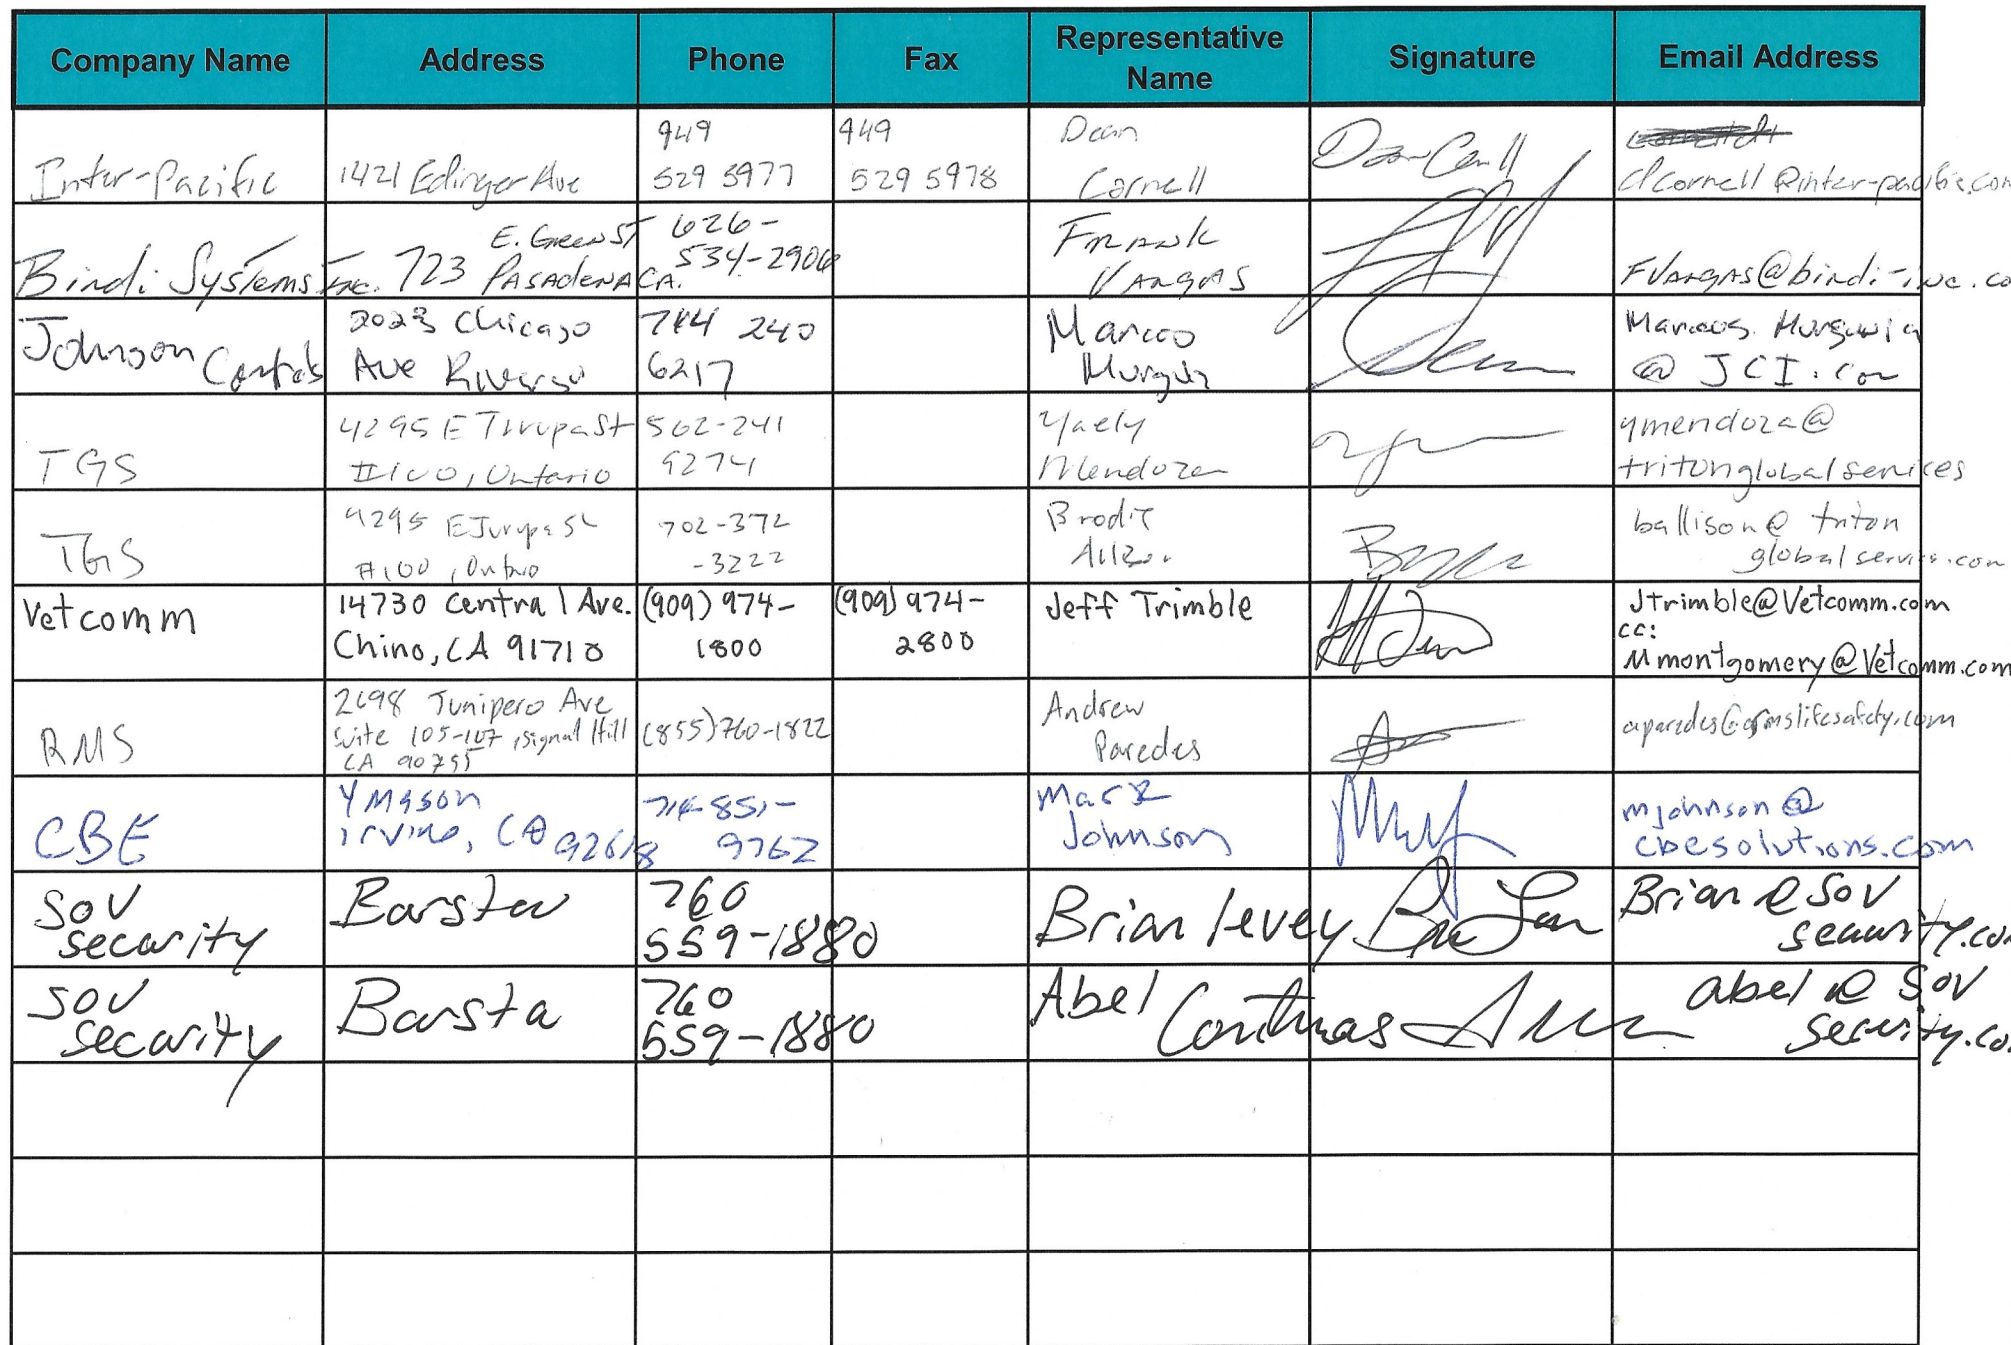 Company Name Address Phone Fax Representative Name Signature Email Address
Inter-Pacific 1421 Edinger Ave 949 529 5977 949 529 5978 Dean Cornell dcornell@inter-pacific.com
Bindi Systems Inc. 723 E. Green ST PASADENA CA. 626-534-2906 FRANK VARGAS FVARGAS@bindi-inc.co
Johnson Controls Chicago Ave 240 6217 Marcos @ JCI.com
TGS 4295 E Jurupa St #100, Ontario 562-241 9274 Yaely Mendoza ymendoza@ tritonglobalservices
TGS 4295 E Jurupa St #100, 702-372 -3222 Brodie ballison@ triton globalservices.com
Vetcomm 14730 Central Ave. Chino, CA 91710 (909) 974-1800 (909) 974-2800 Jeff Trimble Jtrimble@Vetcomm.com cc: Mmontgomery@Vetcomm.com
RMS 2698 Junipero Ave Suite 105-107, Signal Hill CA 90755 (855)760-1822 Andrew Paredes
CBE Mason Irvine, CA 92618 9762 Mark Johnson mjohnson@ cbesolutions.com
SOV security 760 559-1880 Brian levey Brian@SOV security.com
SOV security Barsto 760 559-1880 Abel abel@SOV security.co